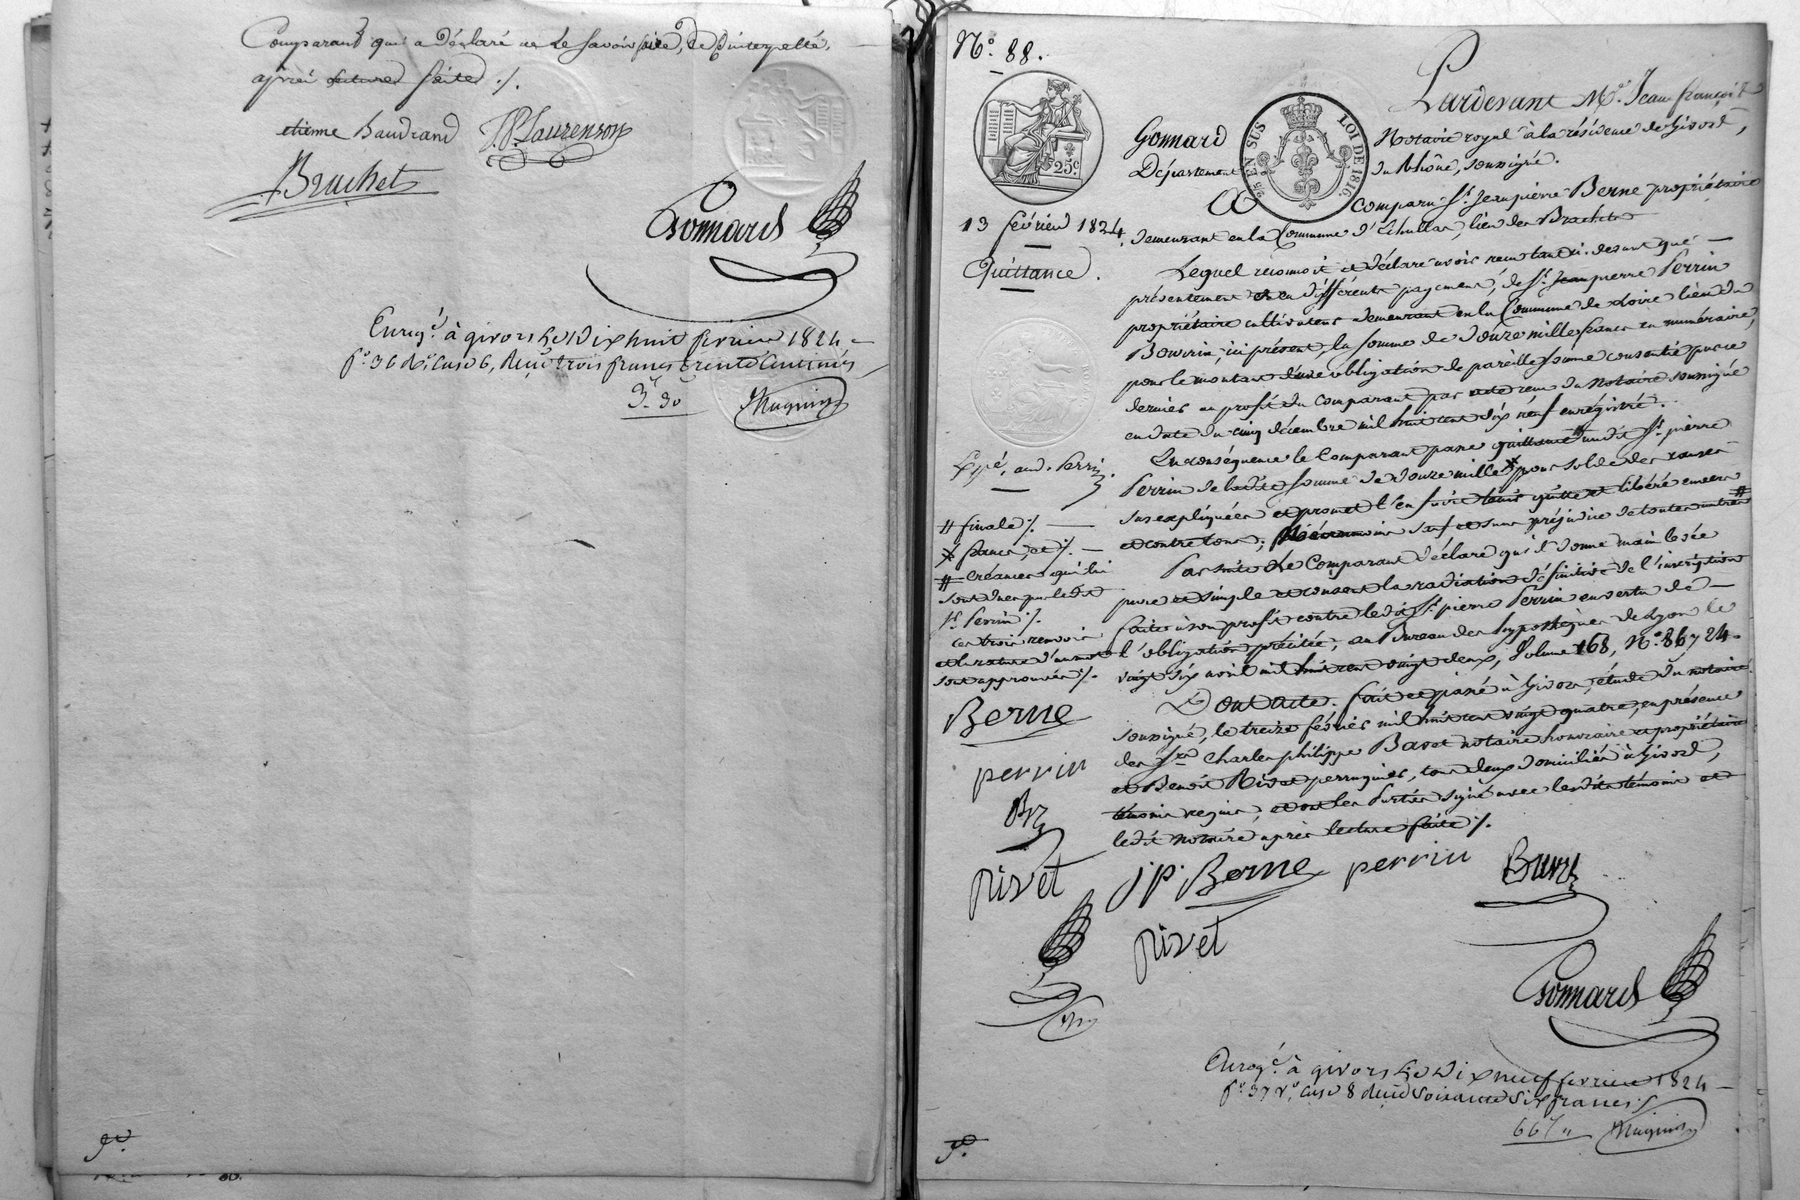 Comparant qui a déclaré ne le savoir faire, de ce interpellé,
après lecture faite ./.
etienne Baudrand J.P. Laurenson
Bruchet
Gonnard
Enreg.é à givors le dix huit fevrier 1824
f.o 36 r.o Case 6, reçu trois francs trente centimes
3. 30 Magnin
N.o 88.
Pardevant M.e Jean françois
Gonnard Notaire royal à la résidence de Givors,
Département du Rhône, soussigné.
25c.
EN SUS LOI DE 1816
Comparu S.r Jean pierre Berne propriétaire
13 février 1824. demeurant en la Commune d'Echallas, lieu des
Quittance.
Lequel reconnoit et déclare avoir reçu tant ci-devant que
présentement en différents payements, de S.r Jean pierre Perrin
propriétaire cultivateur demeurant en la Commune de Loire lieu du
ici présent, la somme de douze mille francs en numéraire,
pour le montant d'une obligation de pareille somme consentie par ce
dernier au profit du comparant par acte reçu du Notaire soussigné
en date du cinq décembre mil huit cent dix neuf enregistré.
En conséquence le Comparant passe quittance audit S.r pierre
Exp.é aud. Perrin
Perrin de ladite somme de douze mille pour solde des causes
sus expliquées et promet l'en faire tenir quitte et libéré envers
// finale ./.
et contre tous; sauf et sans préjudice de toutes autres
francs et ./.
# créances qu'il lui
sont dues par ledit
S.r Perrin ./.
Par suite le Comparant déclare qu'il donne main levée
pure et simple et consent la radiation définitive de l'inscription
faite à son profit contre ledit S.r pierre Perrin en vertu de
ces trois renvois
et la rature d'un mot
sont approuvés ./.
l'obligation précitée, au Bureau des hypothèques de Lyon le
vingt six avril mil huit cent vingt deux, Volume 168, N.o 86724.
Dont acte. fait et passé à Givors, étude du notaire
soussigné, le treize février mil huit cent vingt quatre, en présence
des S.rs Charles philippe notaire honoraire et propriétaire
et Benoit Rivet perruquier, tous deux domiciliés à Givors,
témoins requis, et ont les Parties signé avec lesdits témoins et
ledit notaire après lecture faite ./.
Berne
perrin
Rivet J.P. Berne perrin
Rivet
Gonnard
Enreg.é à givors le dix neuf fevrier 1824
f.o 37 v.o Case 8 reçu soixante six francs
66 f. Magnin